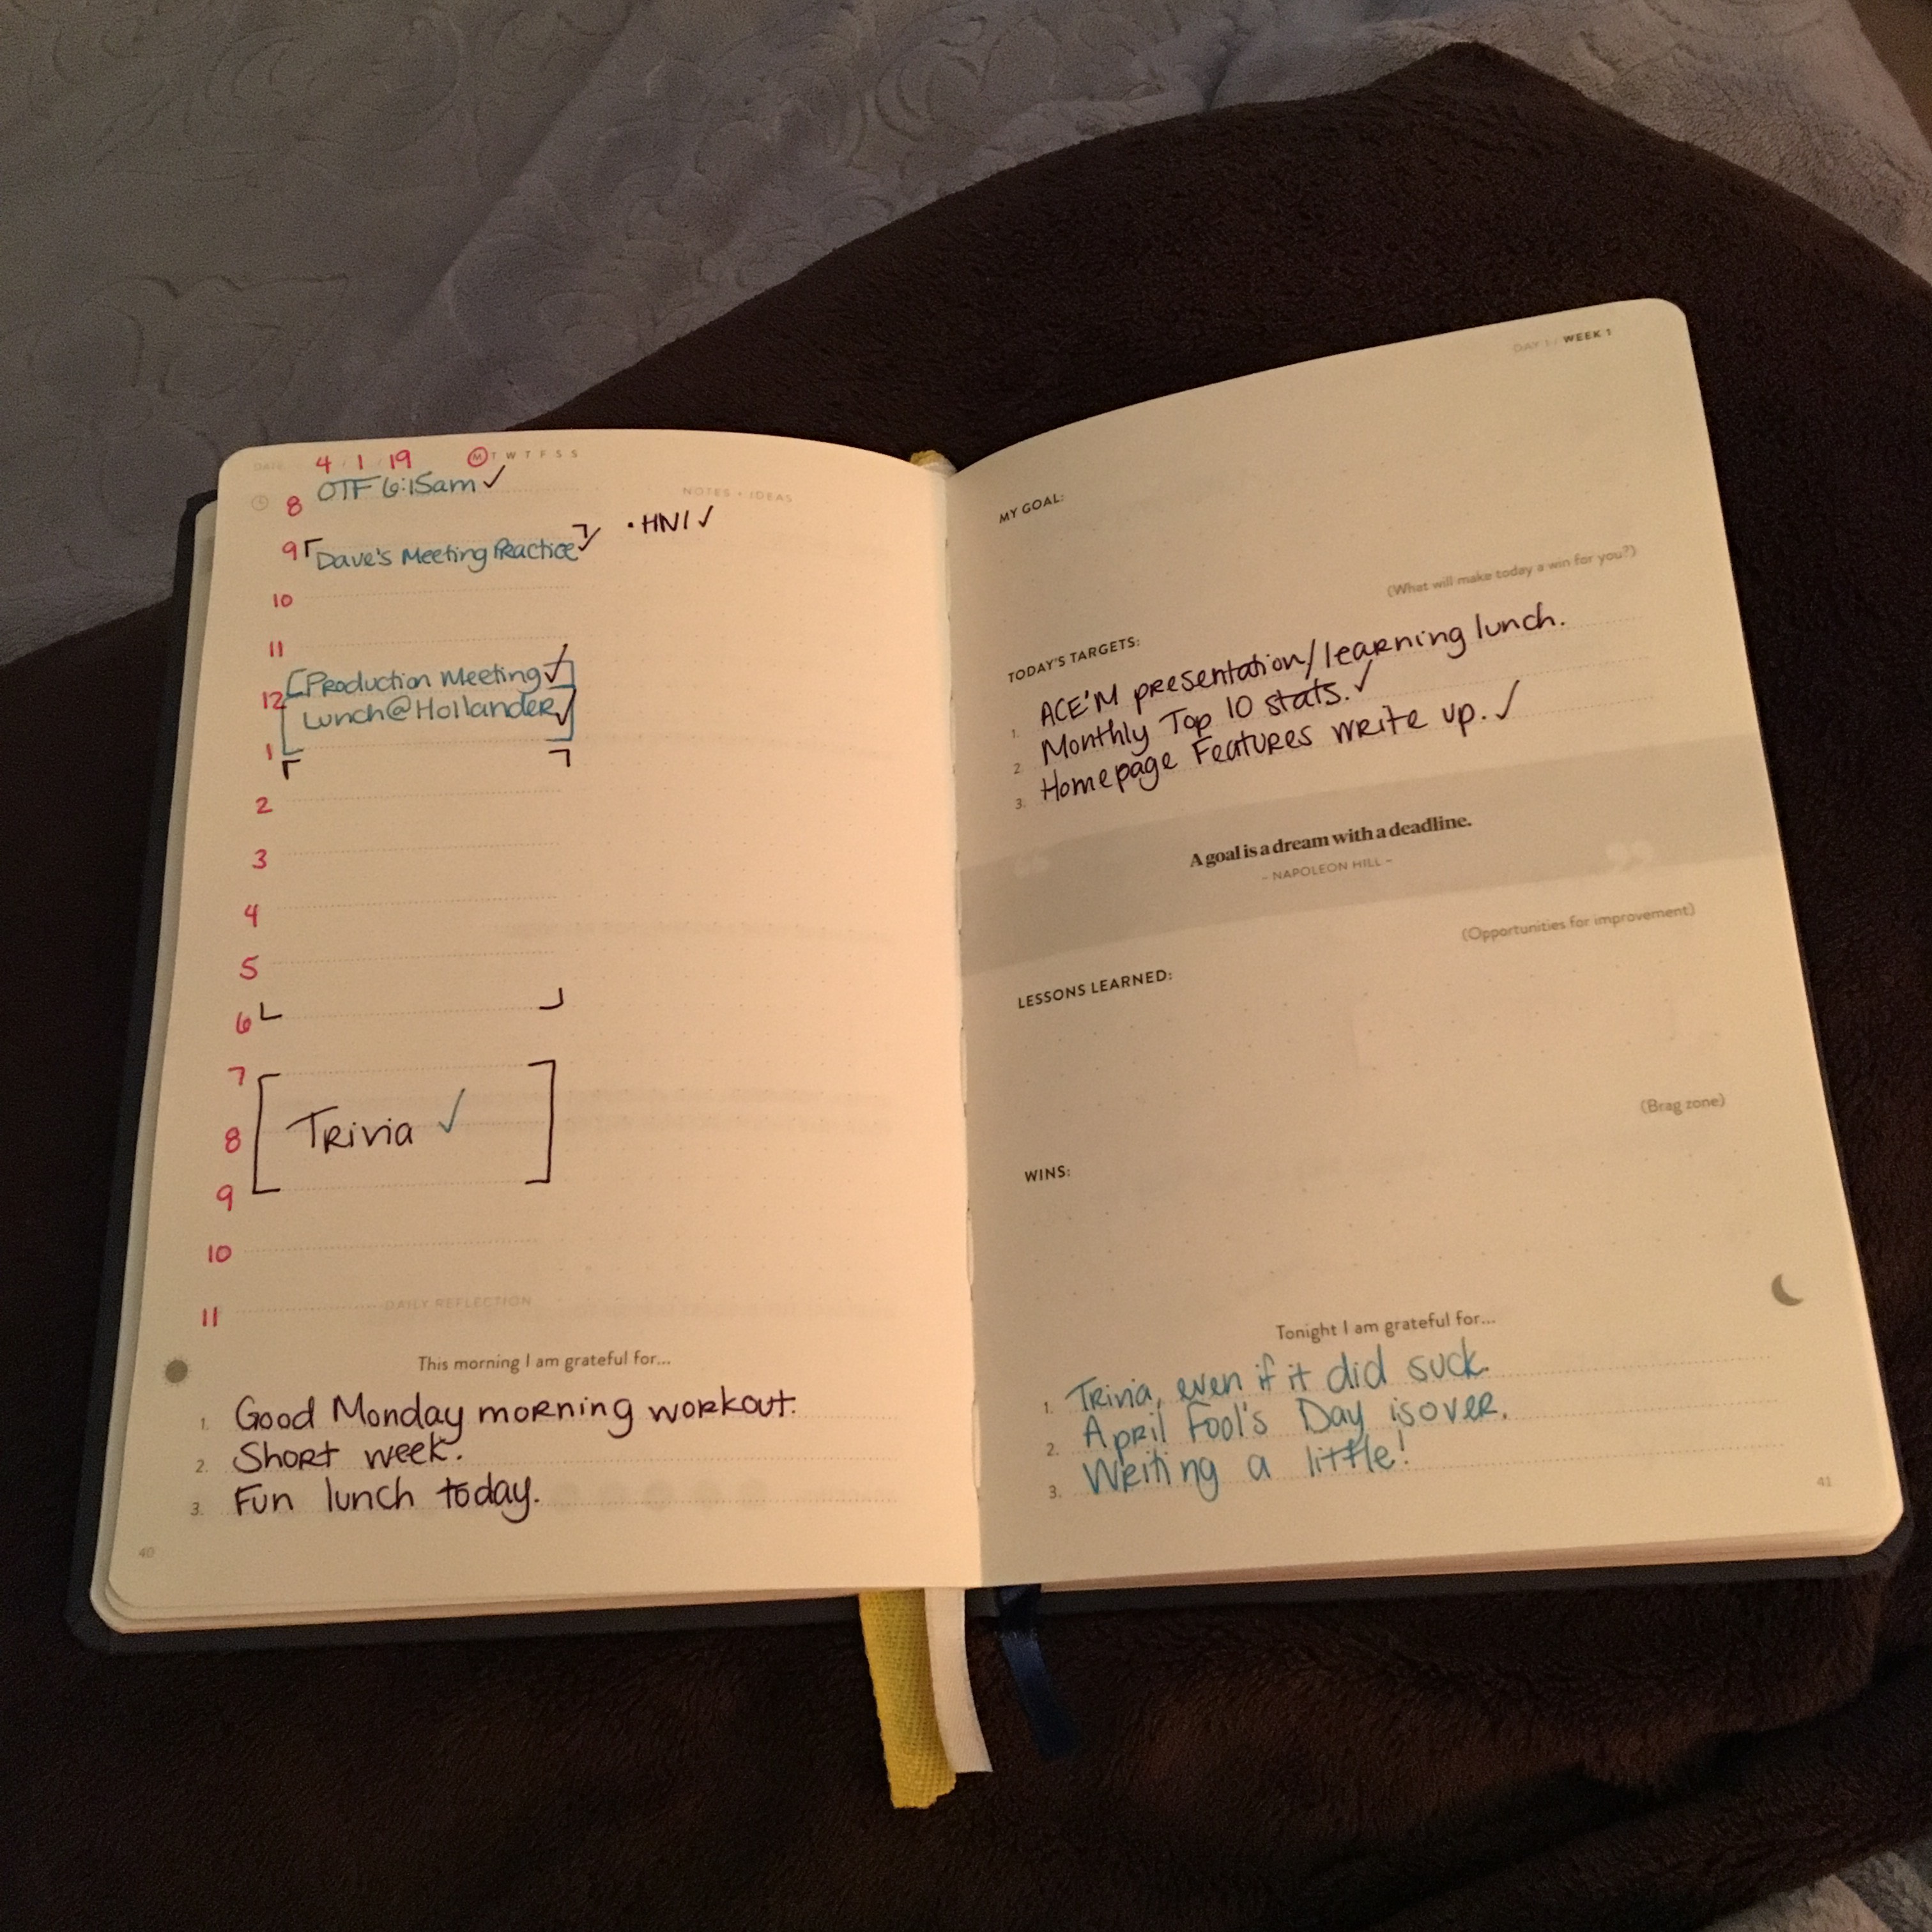 DATE: 4 / 1 / 19 M T W T F S S
8 OTF 6:15am ✓
NOTES + IDEAS
9 Dave's Meeting Practice ✓
• HNI ✓
10
11
Production Meeting ✓
12
Lunch@Hollander ✓
1
2
3
4
5
6
7
8 Trivia ✓
9
10
11
DAILY REFLECTION
This morning I am grateful for...
1. Good Monday morning workout.
2. Short week.
3. Fun lunch today.
40
DAY 1 / WEEK 1
MY GOAL:
(What will make today a win for you?)
TODAY'S TARGETS:
1. ACE'M presentation/learning lunch.
2. Monthly Top 10 stats. ✓
3. Homepage Features write up. ✓
A goal is a dream with a deadline.
– NAPOLEON HILL –
(Opportunities for improvement)
LESSONS LEARNED:
(Brag zone)
WINS:
Tonight I am grateful for...
1. Trivia, even if it did suck.
2. April Fool's Day is over.
3. Writing a little!
41